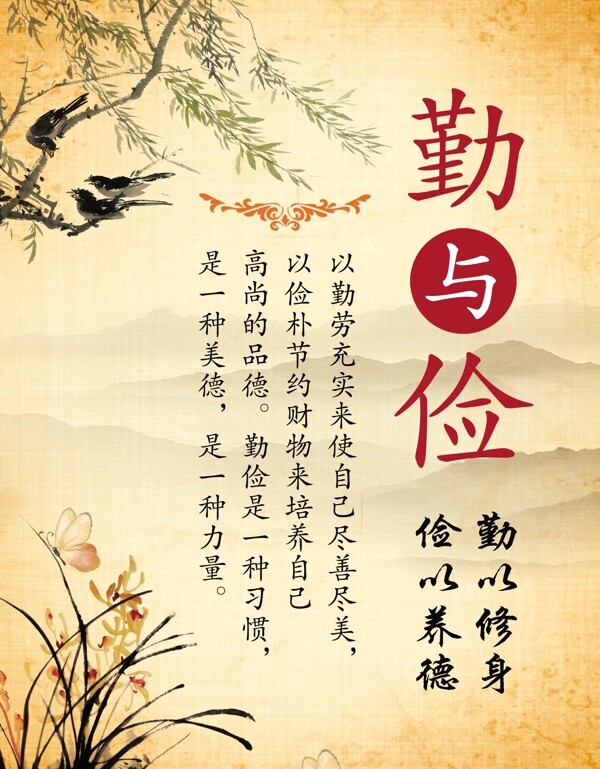 勤与俭
勤以修身
俭以养德
以勤劳充实来使自己尽善尽美，
以俭朴节约财物来培养自己
高尚的品德。勤俭是一种习惯，
是一种美德，是一种力量。